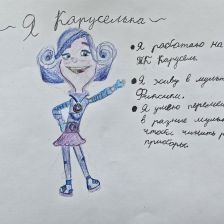 ~ Я Каруселька ~
• Я работаю на
ТК Карусель
• Я живу в мульт
Фиксики.
• Я умею перемещ
в разные муль
чтобы чинить р
приборы.